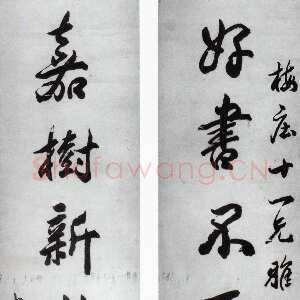 梅庄十一兄雅
好書不
嘉樹新
Shufawang.CN